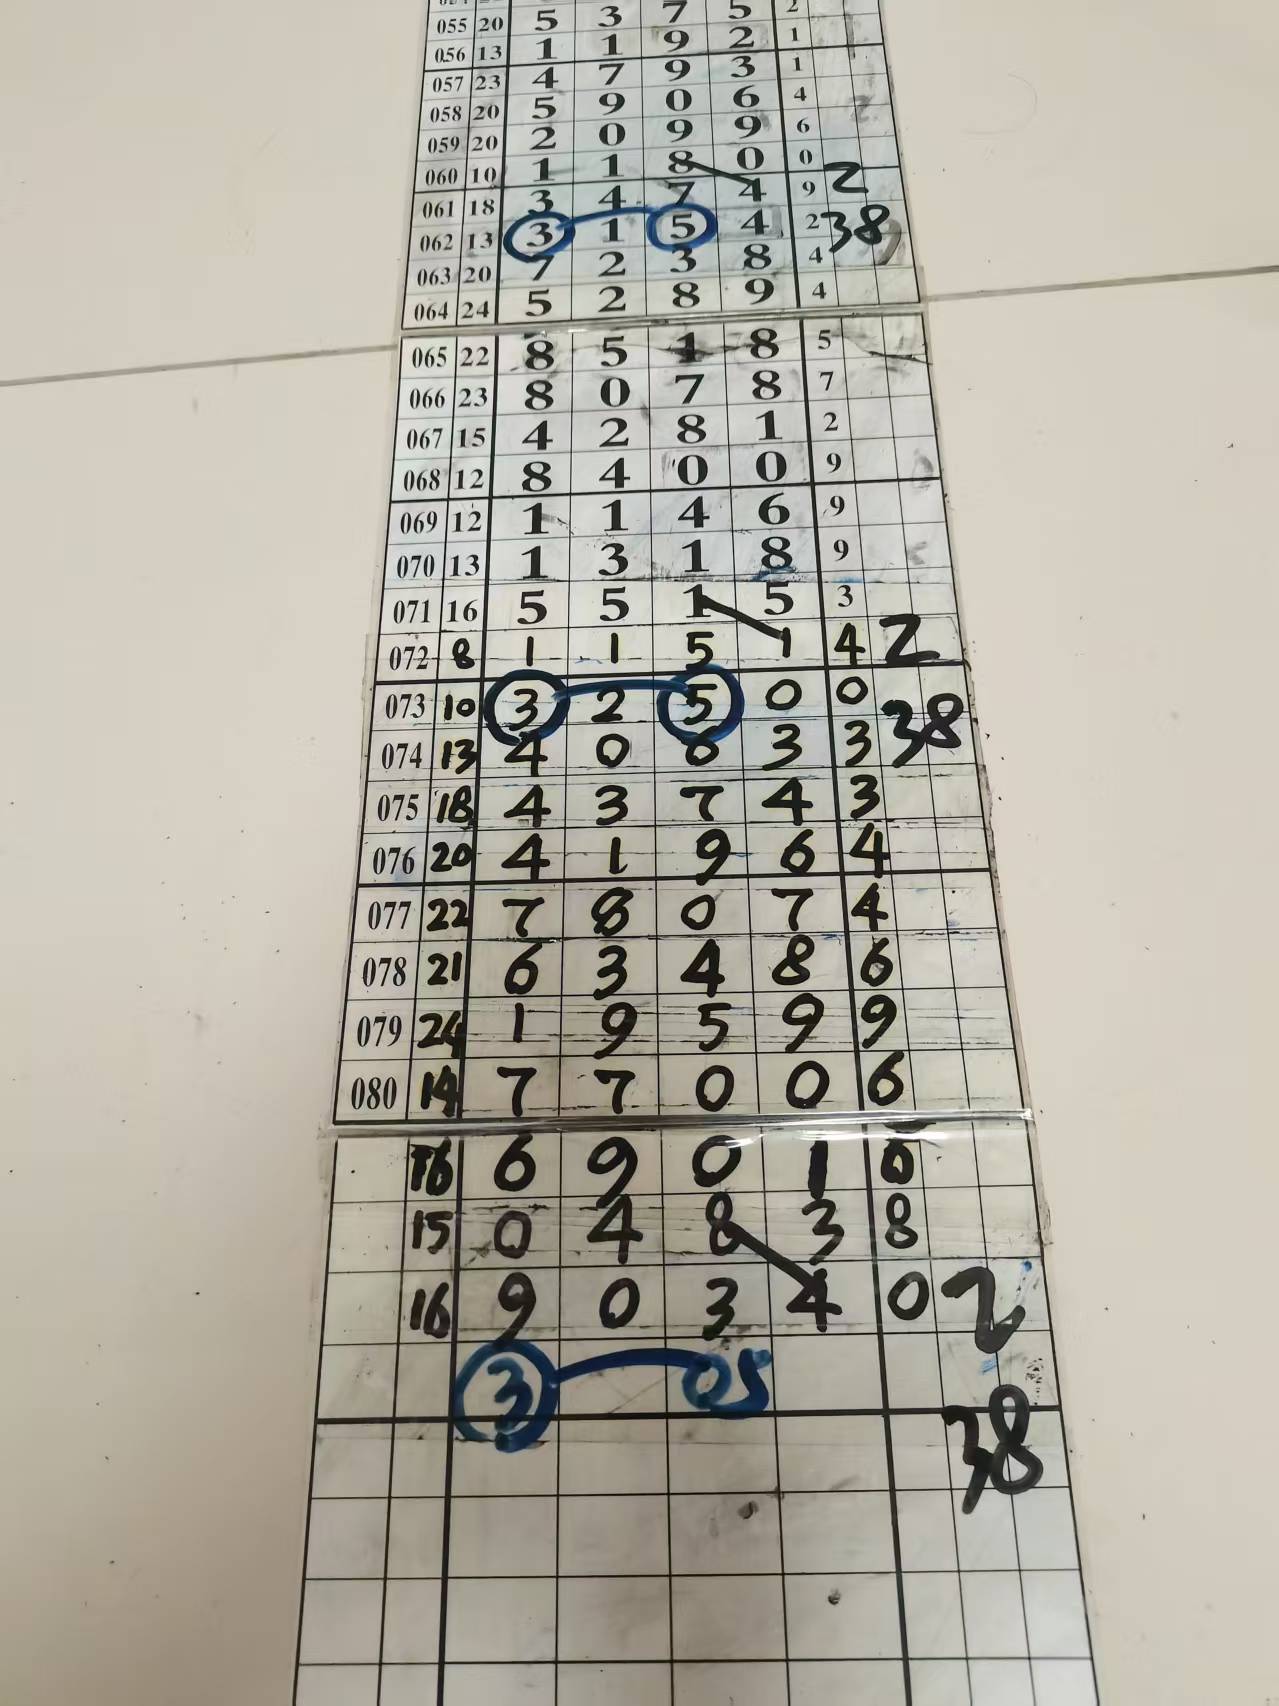 055 20 5 3 7 5 2
056 13 1 1 9 2 1
057 23 4 7 9 3 1
058 20 5 9 0 6 4
059 20 2 0 9 9 6
060 10 1 1 8 0 0
061 18 3 4 7 4 9 2
062 13 3 1 5 4 2 38
063 20 7 2 3 8 4
064 24 5 2 8 9 4
065 22 8 5 1 8 5
066 23 8 0 7 8 7
067 15 4 2 8 1 2
068 12 8 4 0 0 9
069 12 1 1 4 6 9
070 13 1 3 1 8 9
071 16 5 5 1 5 3
072 8 1 1 5 1 4 2
073 10 3 2 5 0 0 38
074 13 4 0 6 3 3
075 18 4 3 7 4 3
076 20 4 1 9 6 4
077 22 7 8 0 7 4
078 21 6 3 4 8 6
079 24 1 9 5 9 9
080 14 7 7 0 0 6
16 6 9 0 1 6
15 0 4 8 3 8
16 9 0 3 4 0 2
3 05
38